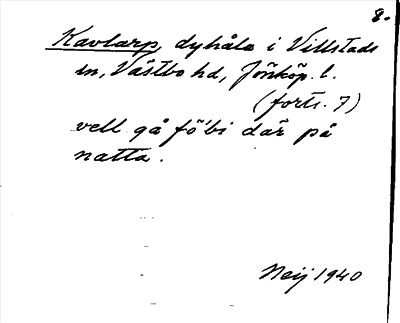 8.
Kavlarp, dyhåla i Villstads
sn, Västbo hd, Jönköp. l.
(forts. 7)
vell gå föbi där på
natta.
Neij 1940